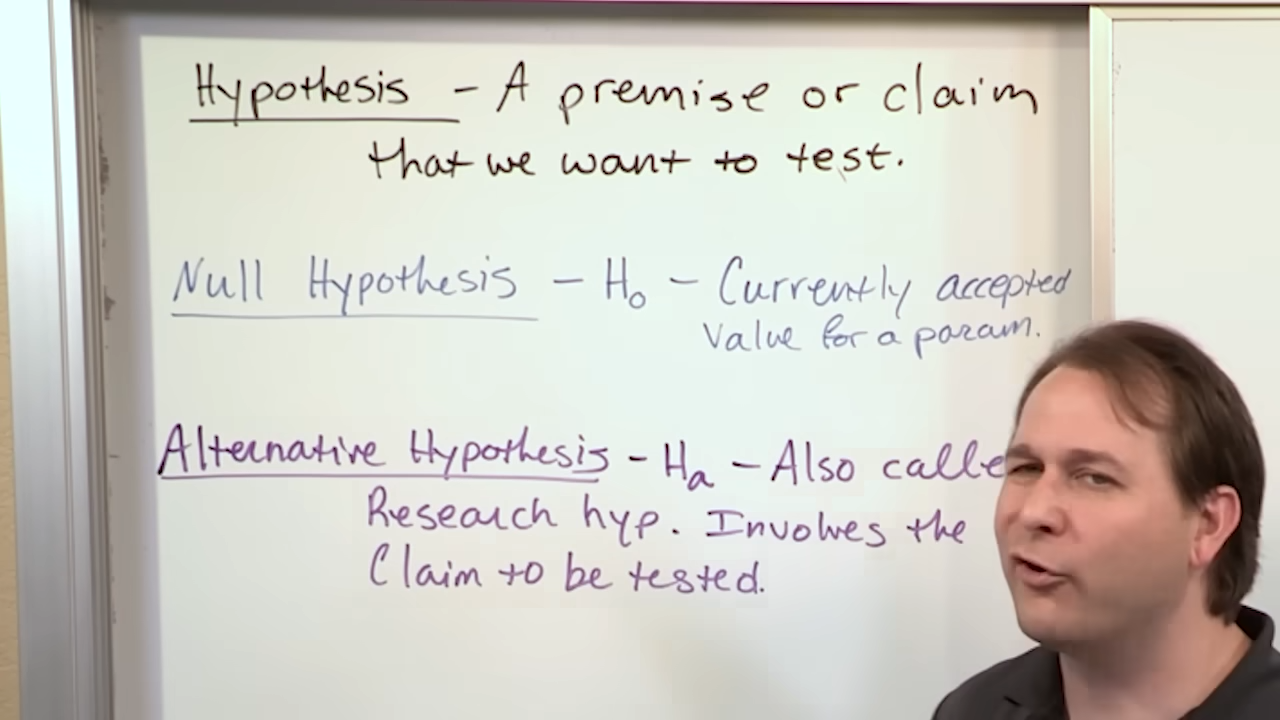 Hypothesis - A premise or claim
that we want to test.
Null Hypothesis - H₀ - Currently accepted
value for a param.
Alternative Hypothesis - Hₐ - Also calle
Research hyp. Involves the
Claim to be tested.